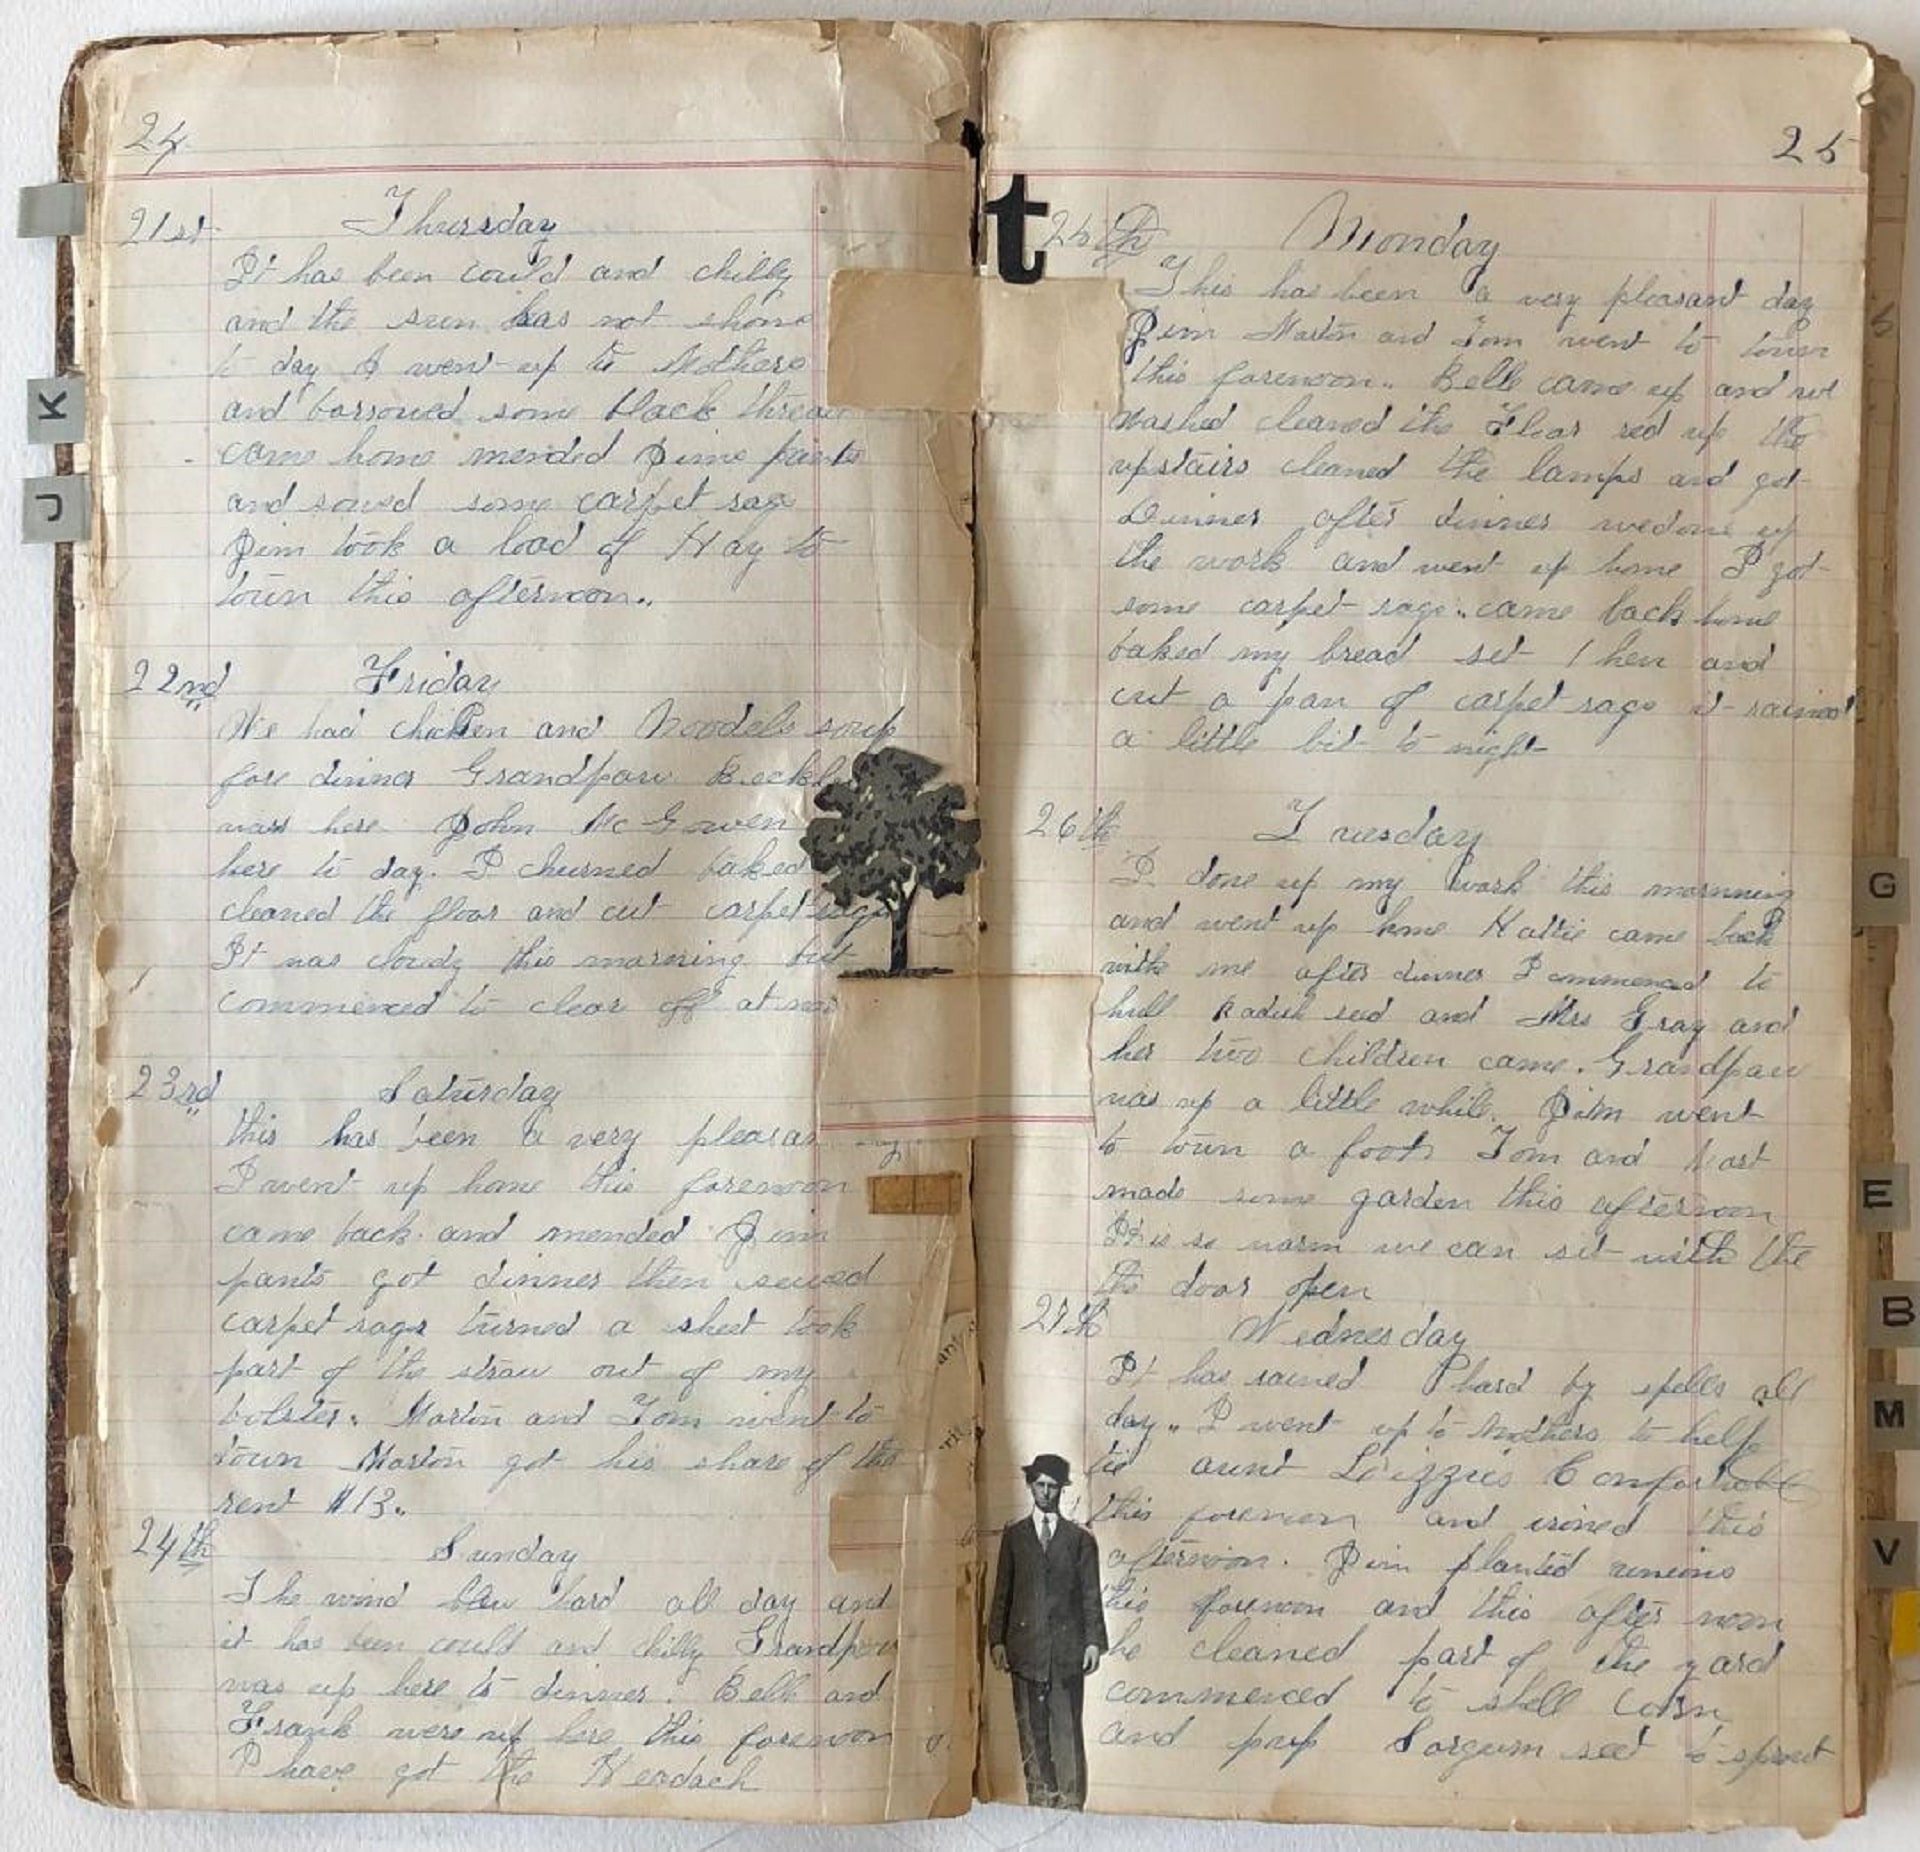 24
21st Thursday
It has been could and chilly
and the sun has not shone
to day I went up to Mothers
and borrowed some black thread
came home mended Jims pants
and sowed some carpet rags
Jim took a load of Hay to
town this afternoon..
22nd Friday
We had chicken and Noodels soup
fore dinner Grandpaw
was here John McGowen
here to day. I churned baked
cleaned the floor and cut carpet rags
It was cloudy this morning but
commenced to clear off at noon
23rd Saturday
this has been a very
I went up home this forenoon
came back and mended Jims
pants got dinner then sewed
carpet rags turned a sheet took
part of the straw out of my
bolster. Marton and Tom went to
town Marton got his share of the
rent $13..
24th Sunday
The wind blew hard all day and
it has been could and chilly Grandpaw
was up here to dinner. Bell and
Frank were up here this forenoon
I have got the Headach
25
t
25th Monday
This has been a very pleasant day
Jim Marton and Tom went to town
this forenoon.. Bell came up and we
washed cleaned the Floor red up the
upstairs cleaned the lamps and got
Dinner after dinner we done up
the work and went up home I got
some carpet rags.. came back home
baked my bread set 1 hen and
cut a pan of carpet rags it rained
a little bit to night
26th Tuesday
I done up my work this mornning
and went up home Hattie came back
with me after dinner I commenced to
hull Radish seed and Mrs Gray and
her two children came. Grandpaw
was up a little while. Jim went
to town a foot Tom and Mart
made some garden this afternoon
It is so warm we can set with the
the door open
27th Wednesday
It has rained hard by spells all
day.. I went up to Mothers to help
tie aunt Leizzies Comfortable
this forenoon and ironed this
afternoon. Jim planted unions
this forenoon and this after noon
he cleaned part of the yard
commenced to shell Corn
and put Sorgum seed to sprout
K
J
G
E
B
M
V